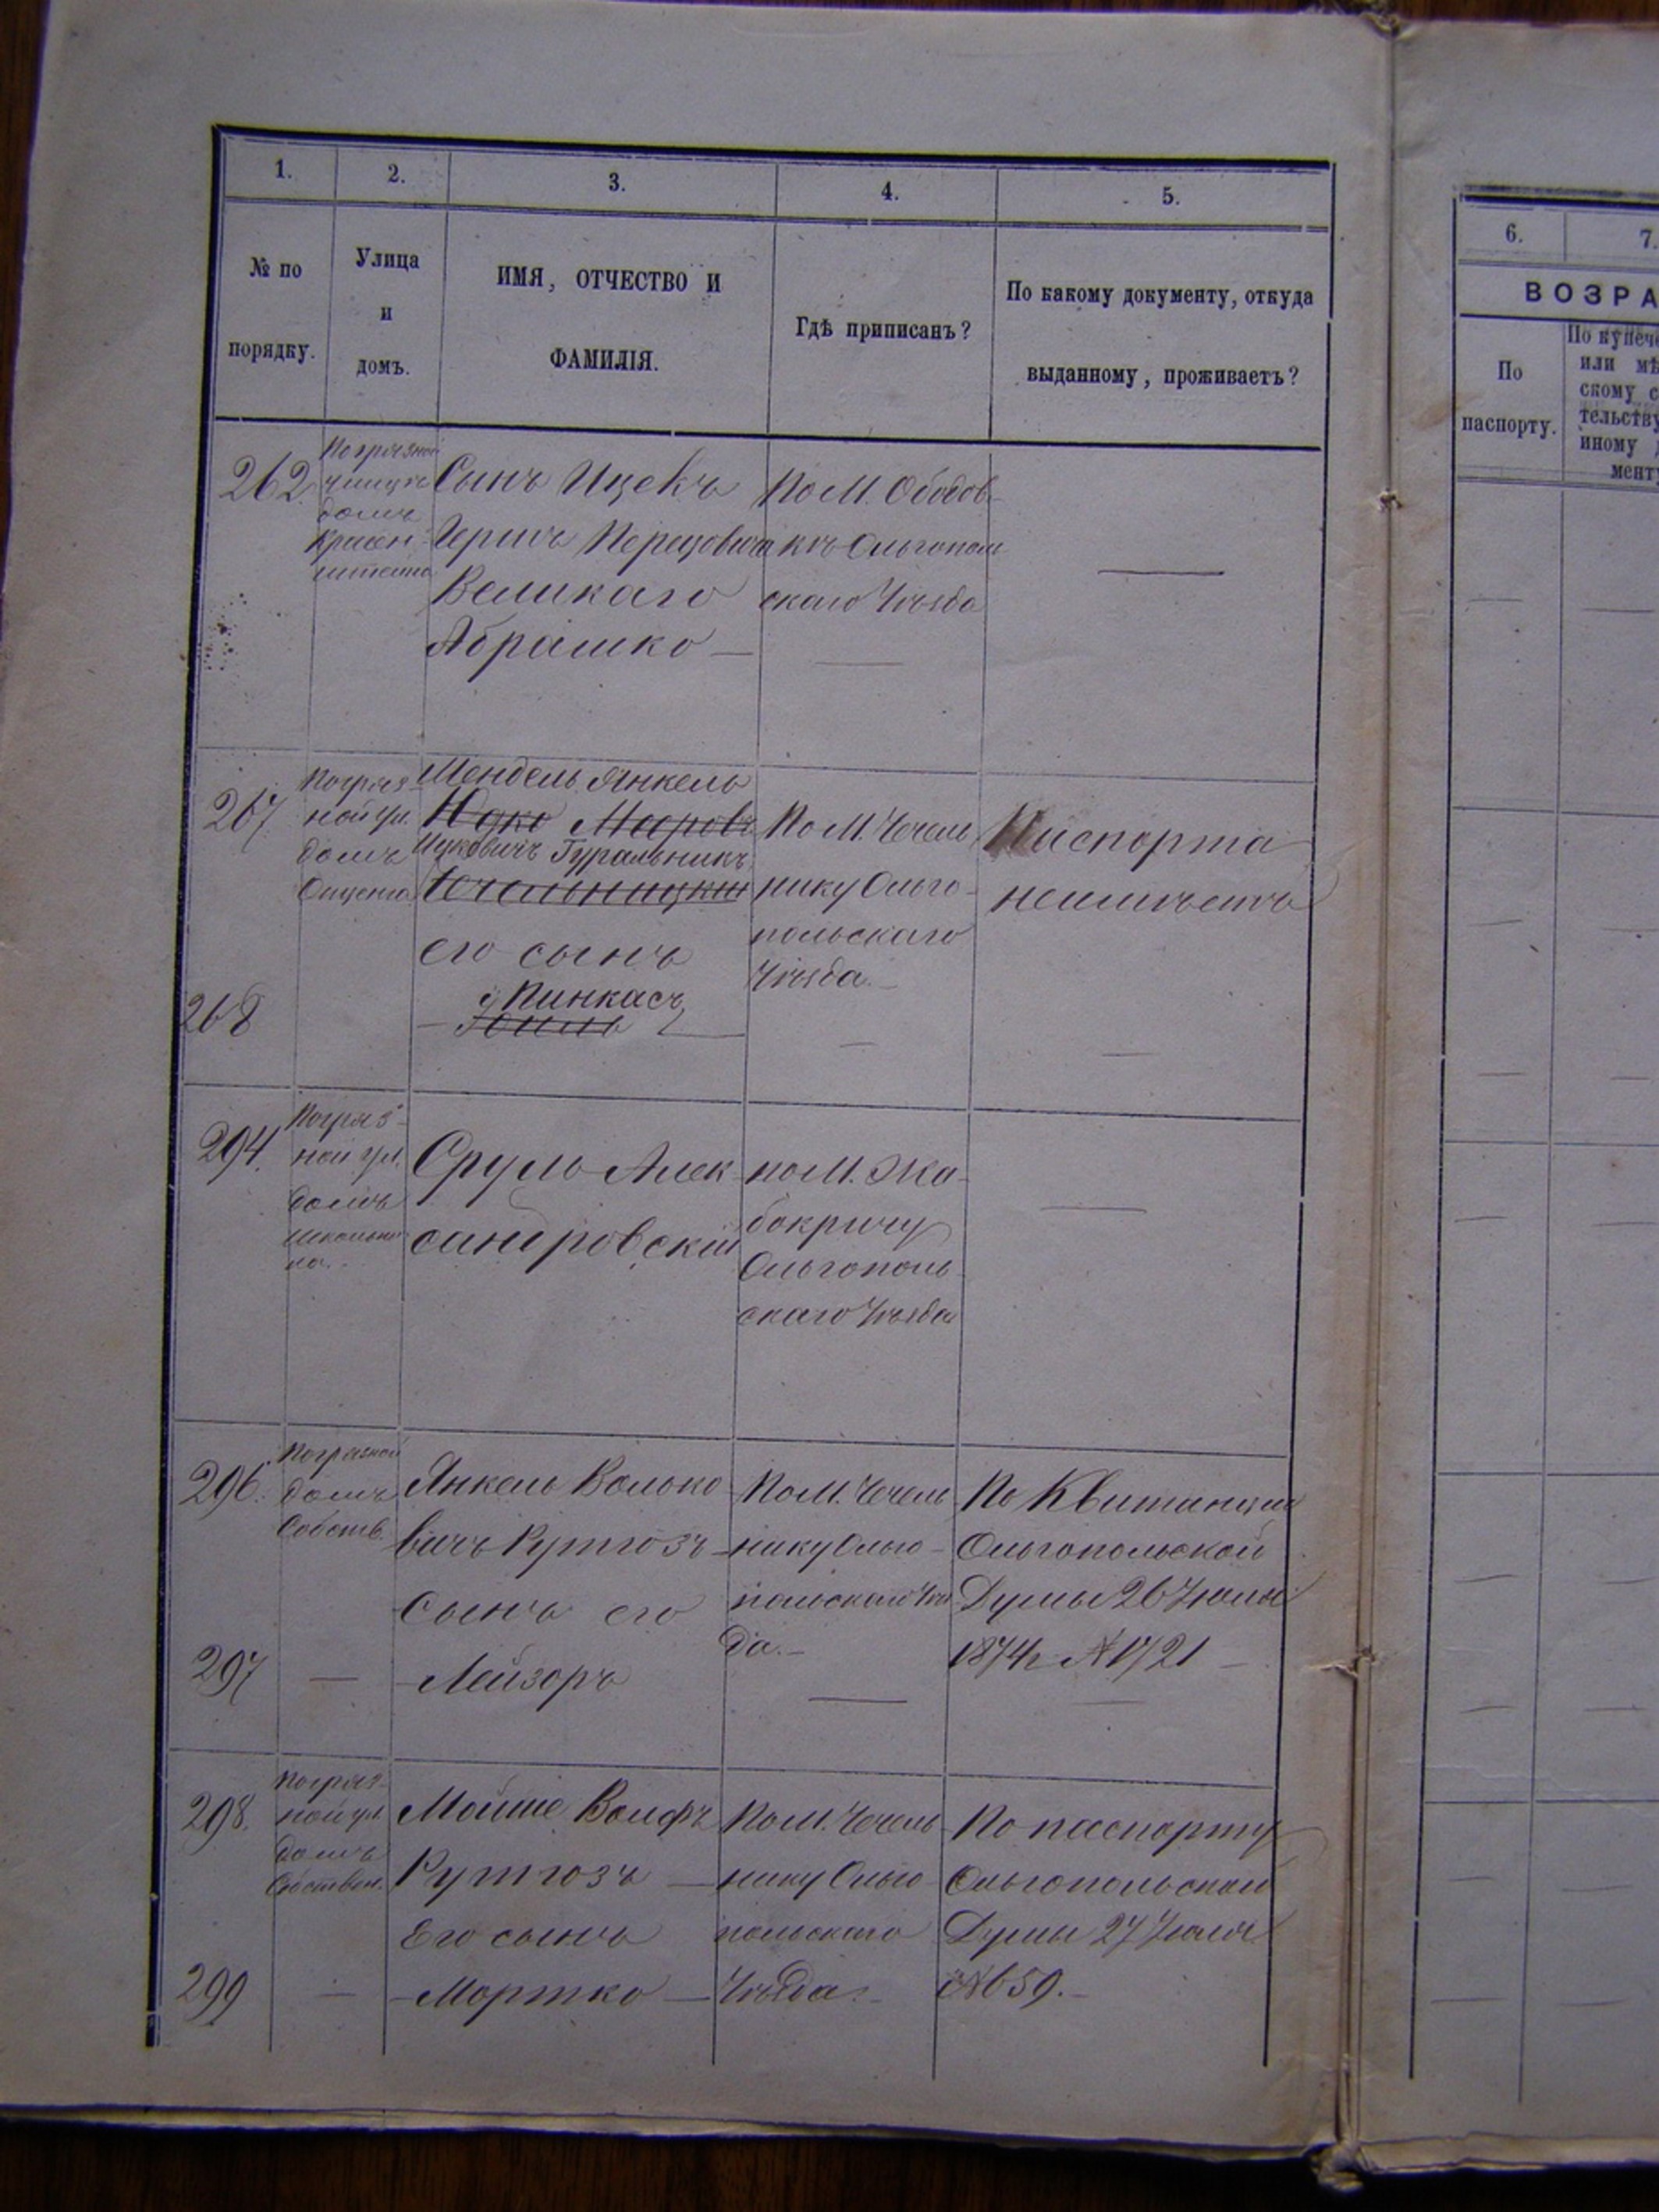 1. 2. 3. 4. 5.
№ по порядку.
Улица и домъ.
ИМЯ, ОТЧЕСТВО И
ФАМИЛІЯ.
Гдѣ приписанъ?
По какому документу, откуда
выданному, проживаетъ?
262.
По грязной
улицѣ
домъ
Сынъ Ицекъ
Гершъ Перецовича
Великаго
Абрашко —
По М. Ободов-
кѣ Ольгополь
скаго Уѣзда
267
По гряз-
ной ул.
домъ
Мендель Янкель
Юдко Мееровъ
Ицковичъ Гуральникъ
Чечельницкій
его сынъ
По М. Чечель
нику Ольго-
польскаго
Уѣзда. —
Паспорта
неимѣетъ
268
Пинкасъ
294.
По гряз-
ной ул.
домъ
Сруль Алек
сандровскій
по М. Жа-
бокричу
Ольгополь
скаго Уѣзда
296.
По грязной
домъ
Собств.
Янкель Волько
вичъ Рутгозъ
Сынъ его
По М. Чечель
нику Ольго-
польскаго Уѣз
да. —
По Квитанціи
Ольгопольской
Думы 26 Іюля
1874 г № 1721 —
297
— Лейзоръ
298.
По гряз-
ной ул
домъ
Собствен.
Мойше Волфъ
Рутгозъ —
Его сынъ
По М. Чечель
нику Ольго
польскаго
Уѣзда. —
По паспорту
Ольгопольской
Думы 27 Іюля
№ 659. —
299
— Мортко —
6. 7.
ВОЗРА
По
паспорту.
По купече
или мѣ
скому с
тельству
иному д
менту